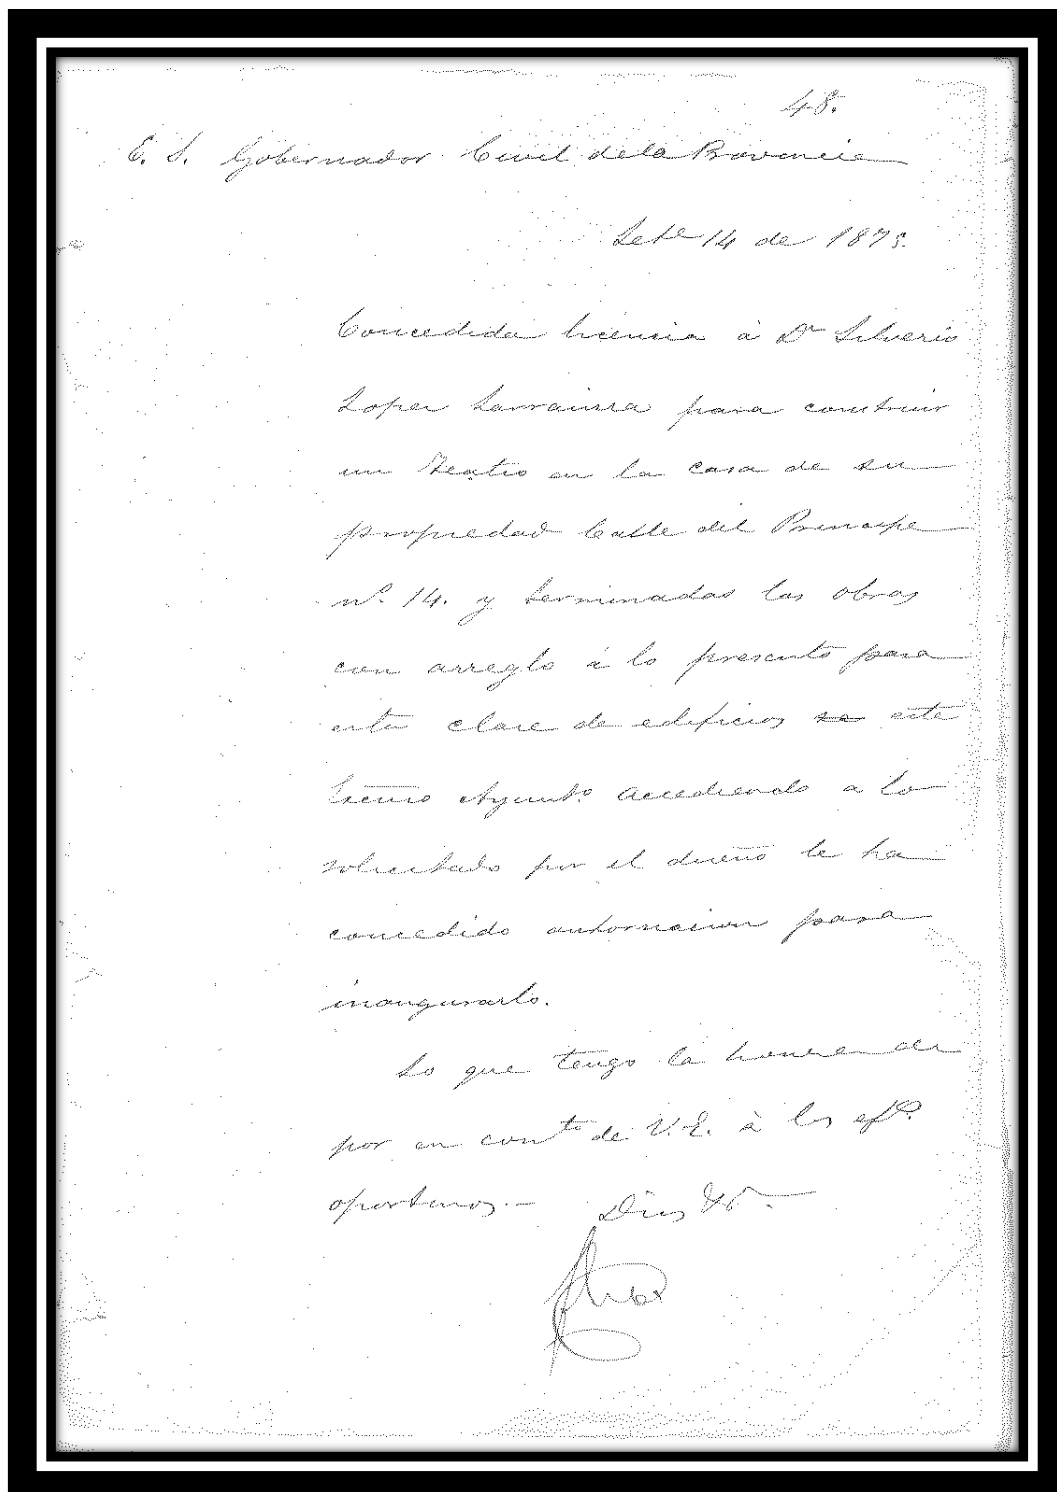 48.
E. S. Gobernador Civil de la Provincia
Set.e 14 de 1875.
Concedida licencia à Dn Silverio
Lopez Larrainza para construir
un Teatro en la casa de su
propiedad Calle del Principe
nº. 14. y terminadas las obras
con arreglo à lo prescrito para
esta clase de edificios se este
Excmo Ayunt.o accediendo a lo
solicitado por el dueño le ha
concedido autorizacion para
inaugurarlo.
Lo que tengo la honra de
por en cont.o de V. E. à los ef.s
oportunos.— Dios